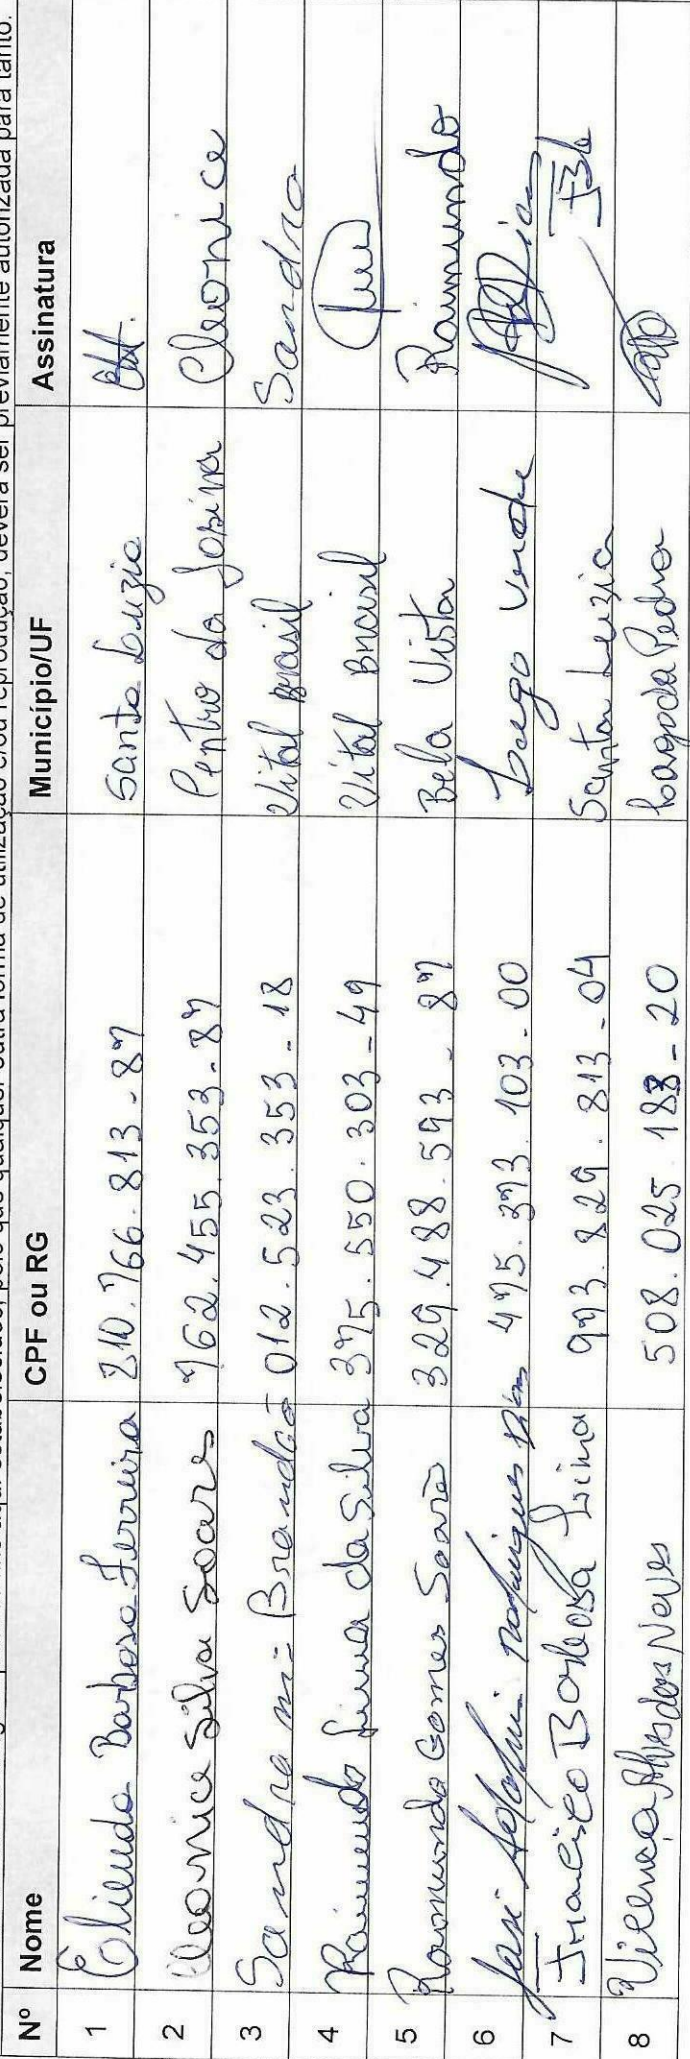 previamente autorizada para tanto.
Nº Nome CPF ou RG Município/UF Assinatura
1 Elienda Barbosa Ferreira 210.766.813-87 Santa Luzia
2 Cleonice Silva Soares 762.455.353-87 Pentro da Josina Cleonice
3 Sandra mi- Brandão 012.523.353-18 Vital Brasil Sandra
4 Raimundo Lima da Silva 375.550.303-49 Vital Brasil
5 Raimundo Gomes Soares 329.488.593-87 Bela Vista Raimundo
6 José Rodrigues Dias 475.373.103-00 Lago Verde
7 Francisco Barbosa Lima 993.829.813-04 Santa Luzia FBL
8 Vicença Alves das Neves 508.025.183-20 Lago da Pedra